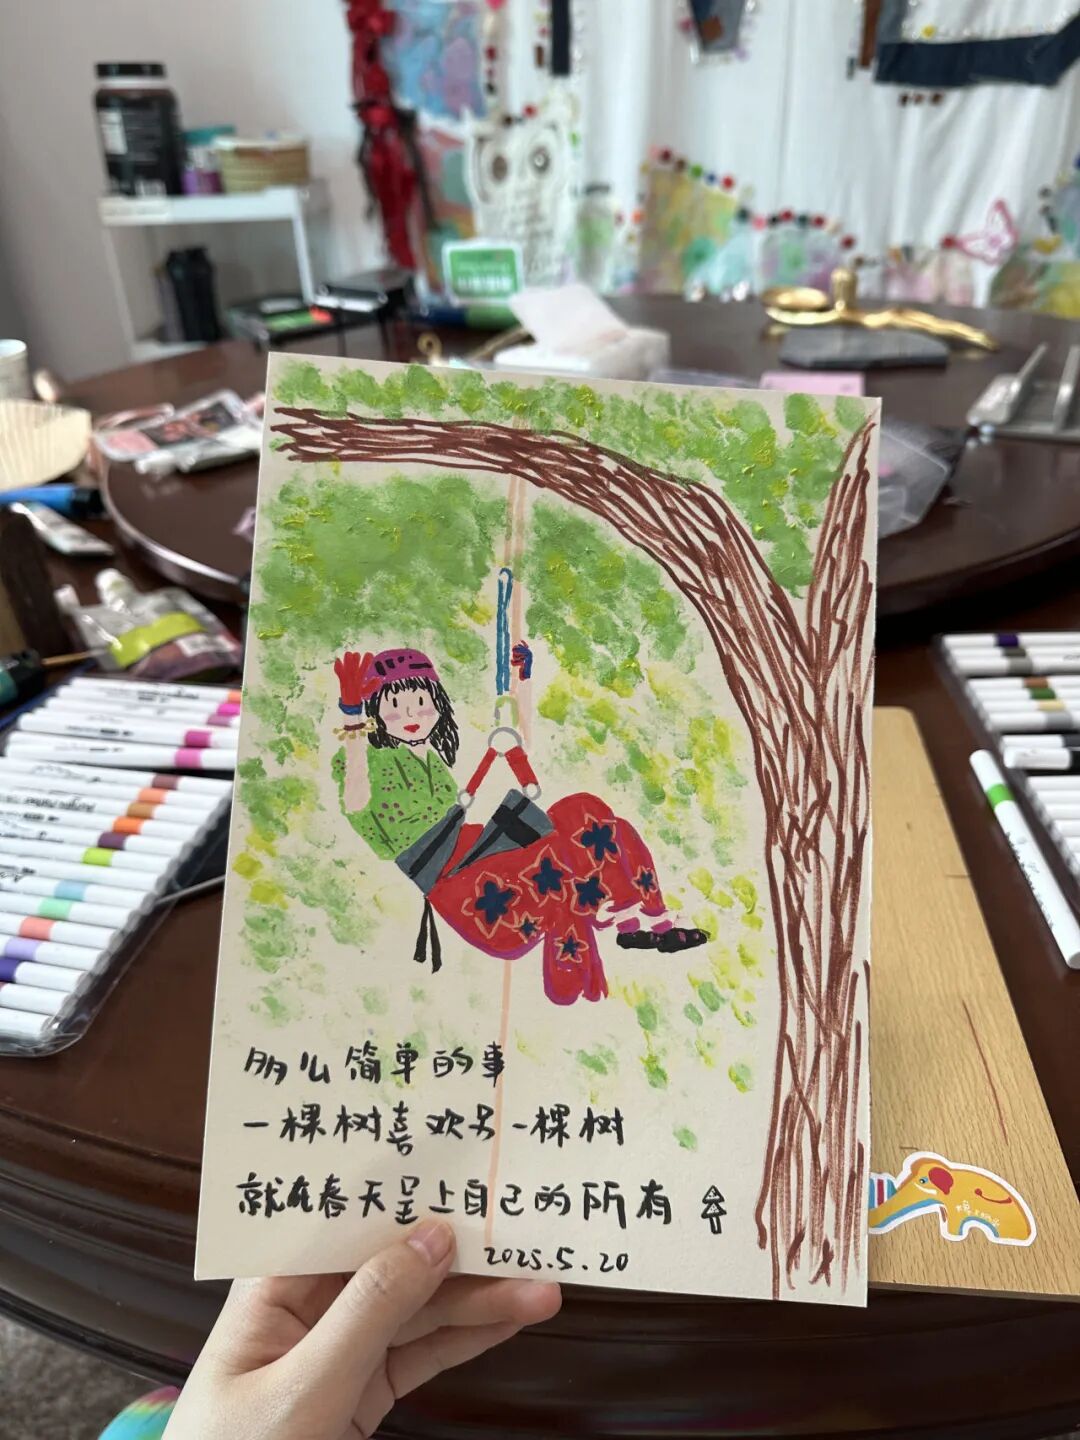 多么简单的事
一棵树喜欢另一棵树
就在春天呈上自己的所有
2025.5.20